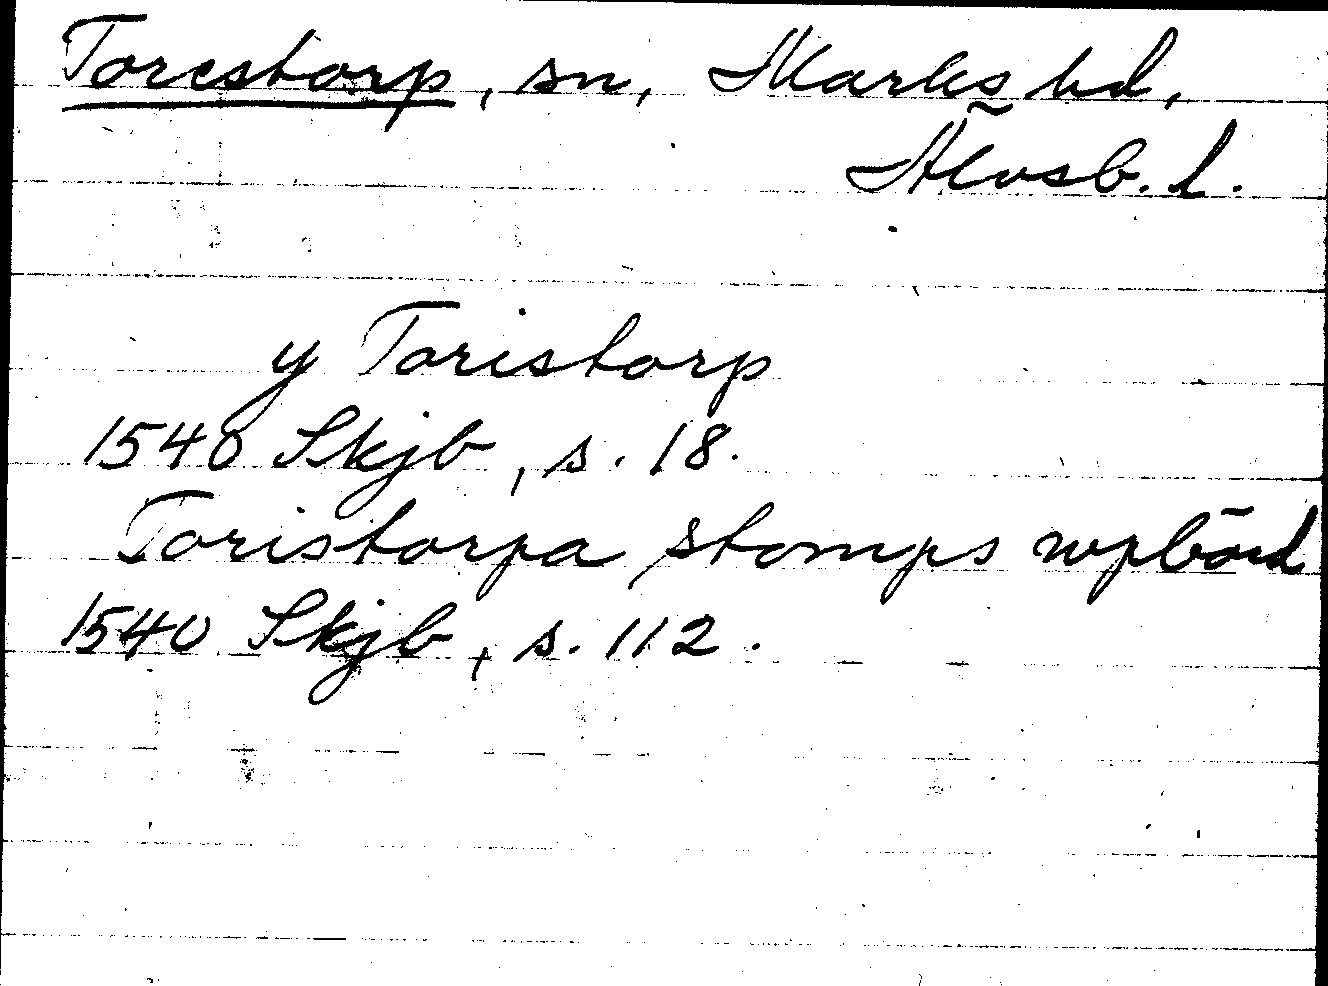 Torestorp, sn, Marks hd,
Älvsb. l.
y Toristorp
1540 Skjb, s. 18.
Toristorpa stomps wpbörd
1540 Skjb, s. 112.